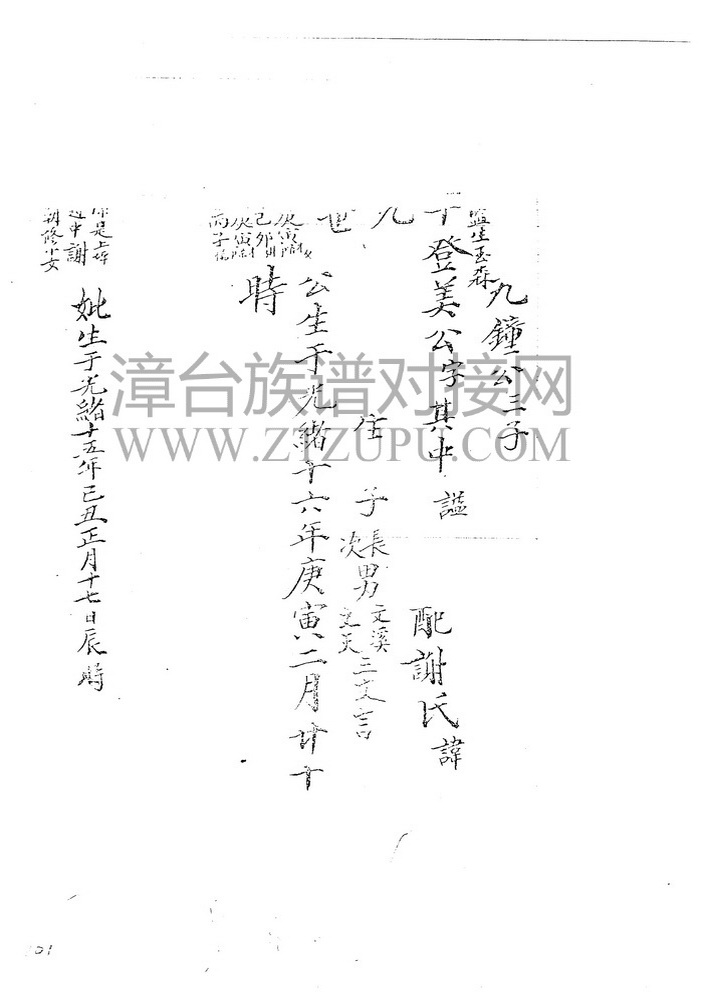 九鐘公三子
監生玉森
十登美公字其中 諡 配謝氏 諱
九世
住
子 長男文溪
次
三文言
庚寅
己卯
庚寅
丙子
公生于光緒十六年庚寅二月廿十
時
上
中謝
朝修小女
妣生于光緒十五年己丑正月十七日辰時
漳台族谱对接网
WWW.ZTZUPU.COM